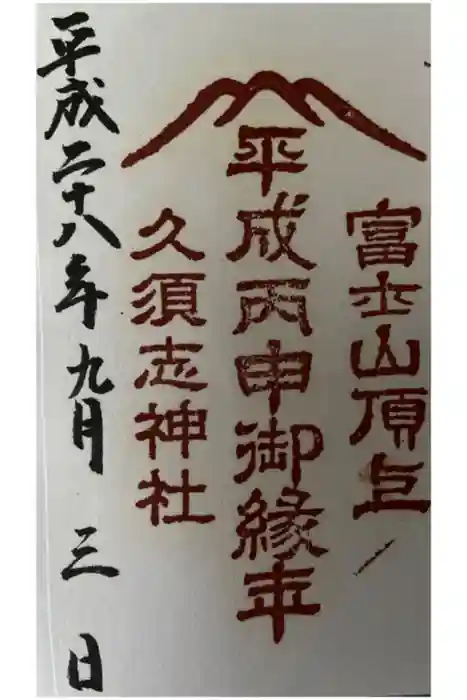 富士山頂上
平成丙申御縁年
久須志神社
平成二十八年九月三日